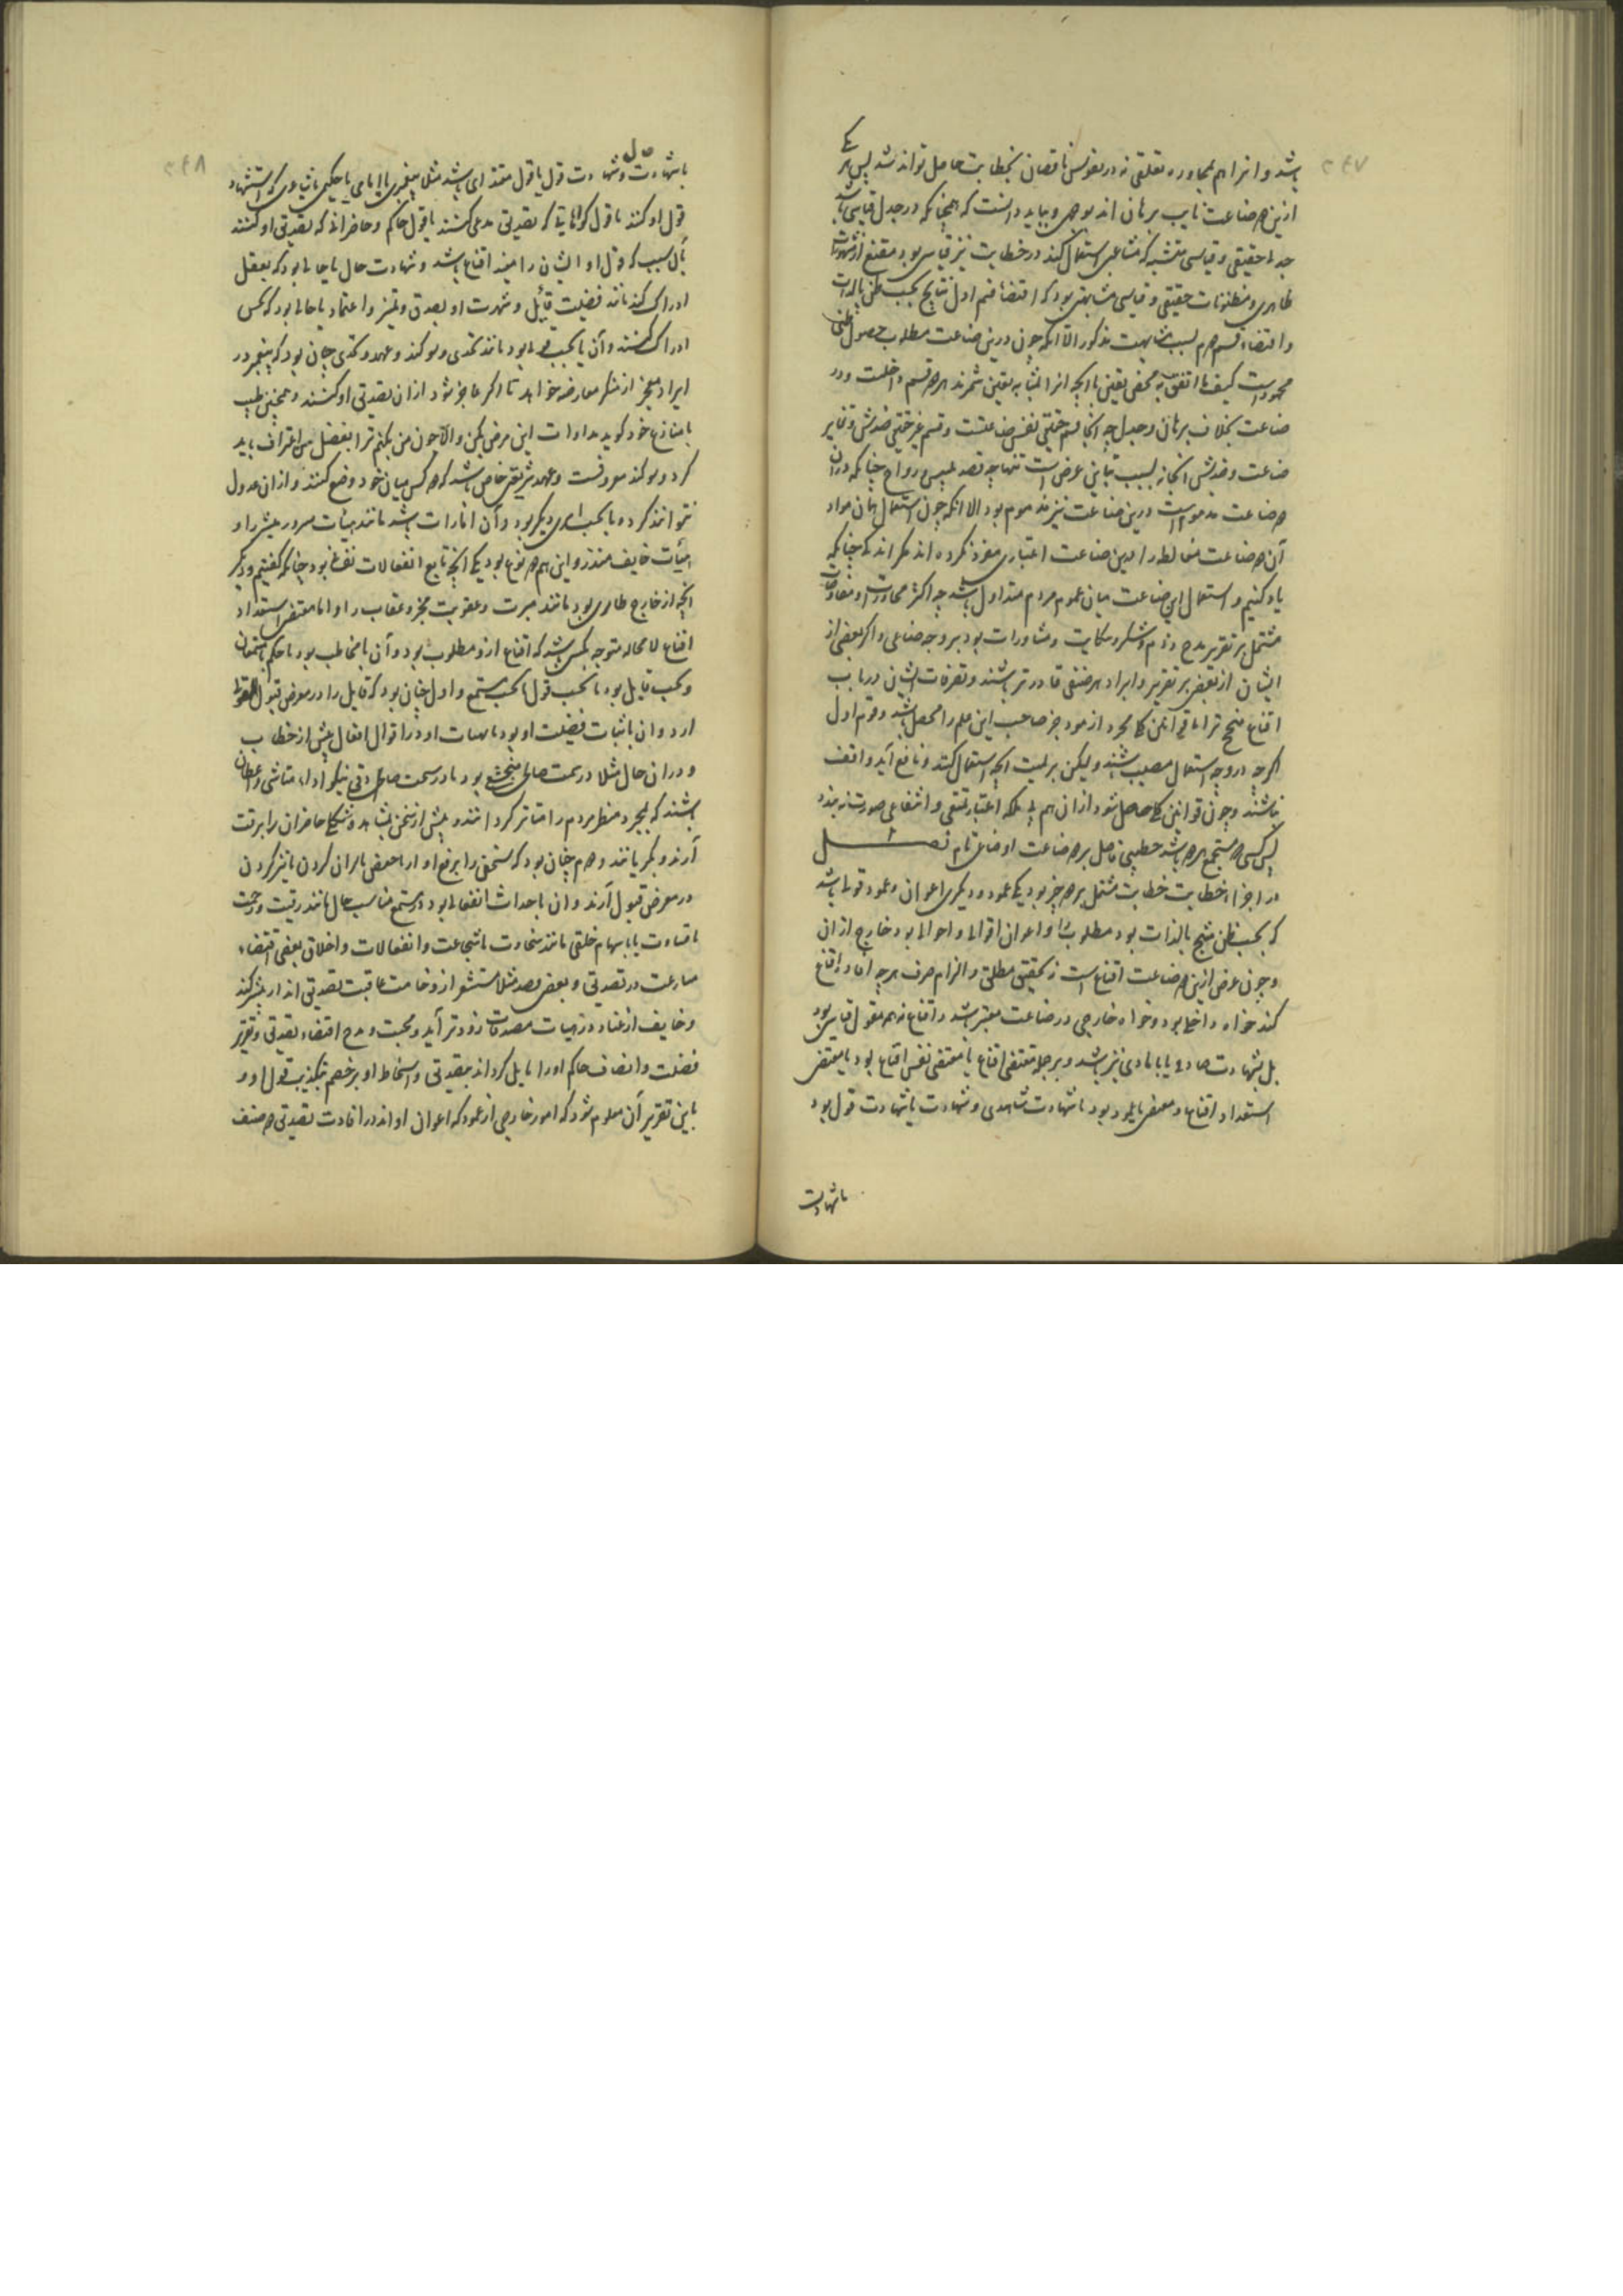 باشد و انرا هم بمجاوره تعلقی نه در نفوس ناقصان بخطابت حاصل تواند شد پس هر یک
ازین دو صناعت نایب برهان اند بوجهی و بباید دانست که همچنانکه در جدل قیاسی باشد
جدلی حقیقی و قیاسی متشبه که مشاغبی استعمال کند در خطابت نیز قیاسی بود مقنع از مشهورات
ظاهری و مظنونات حقیقی و قیاسی مشابهتی بود که اقتضاء قسم اول نتایج بحسب ظن بالذات
و اقتضاء قسم دوم بسبب مشابهت مذکور الا آنکه چون درین صناعت مطلوب حصول ظنی
محمودست کیف ما اتفق نه محض یقین یا آنچه انرا بمثابه یقین شمرند هر دو قسم داخلست و در
صناعت بخلاف برهان و جدل چه آنجا قسم حقیقی نفس صناعتست و قسم غیر حقیقی ضدش و تغایر
صناعت و ضدش آنجا نه بسبب تباین غرض است تنها چه قصد تلبیس و رواج چنانکه در ان
دو صناعت مذمومست درین صناعت نیز مذموم بود الا آنکه چون استعمال همان مواد
آن دو صناعت مغالطه را درین صناعت اعتباری مفرد نکرده اند مگر اندکی چنانکه
یاد کنیم و استعمال این صناعت میان عموم مردم متداول باشد چه اکثر محاورات و مفاوضات
مشتمل بر تقریر مدح و ذم و شکر و شکایت و مشاورات بود بر وجه صناعی و اگر بعضی از
ایشان از بعضی بر تقریر و ایراد هر صنفی قادرتر باشند و تصرفات ایشان در باب
اقناع منجح تر اما قوانین کلی مجرد از مواد جز صاحب این علم را محصل نباشد و قوم اول
اگرچه در وجه استعمال مصیب باشند ولیکن بر لمیت آنچه استعمال کنند و نافع آید واقف
نباشند و چون قوانین کلی حاصل شود از ان هم بی ملکه اعتبار تمتعی و انتفاعی صورت نبندد
پس کسی که مستجمع هر دو باشد خطیبی فاضل بود و صناعت او صناعتی تام فصل
در اجزاء خطابت خطابت مشتمل بر دو جزء بود یکی عمود و دیگری اعوان و عمود قولی باشد
که بحسب ظن منتج بالذات بود مطلوب را و اعوان اقوالی و احوالی بود خارج از ان
و چون غرض ازین صناعت اقناع است نه تحقیق مطلق و الزام صرف هر چه افادت اقناع
کند خواه داخلی بود و خواه خارجی در صناعت معتبر باشد و اقناع نه همه بقول قیاسی بود
بل بشهادت صادق یا بامارتی نیز باشد و بر جمله مقتضی اقناع یا مقتضی نفس اقناع بود یا مقتضی
استعداد اقناع و مقتضی یا عمود بود یا شهادت شاهدی و شهادت یا شهادت قول بود
یا شهادت
۲۴۷
یا شهادت حال و شهادت قول یا قول مقتدای باشد مثلا پیغمبری یا امامی یا حکیمی یا شاعری که استشهاد
قول او کنند یا قول گواهانی که تصدیق مدعی کنند یا قول حاکم و حاضرانی که تصدیق او کنند
بآن سبب که قول او ایشان را مفید اقناع باشد و شهادت حال یا حالی بود که بعقل
ادراک کنند مانند فضیلت قائل و شهرت او بصدق و تمیز و اعتماد یا حالی بود که بحس
ادراک کنند و آن یا بحسب قولی بود مانند تحدی و سوگند و عهد و تحدی چنان بود که پیغمبر در
ایراد معجز از منکر معارضه خواهد تا اگر عاجز شود از ان تصدیق او کنند و همچنین طبیب
با منازع خود گوید مداوات این مرض بکن و الا چون من بکنم ترا بفضل من اعتراف باید
کرد و سوگند معروفست و عهد شریعتی خاص باشد که دو کس میان خود وضع کنند و از ان عدول
نتوانند کرد و یا بحسب امری دیگر بود و آن امارات باشد مانند هیئات مسرور مبشر را و
هیئات خایف منذر و این هم دو نوع بود یکی آنچه تابع انفعالات نفسانی بود چنانکه گفتیم و دیگر
آنچه از خارج طاری بود مانند مبرت و عقوبت مخبر و عقاب را و اما مقتضی استعداد
اقناع لا محاله متوجه بکسی باشد که اقناع ازو مطلوب بود و آن یا مخاطب بود یا حاکم یا مستمعان
و بحسب قایل بود یا بحسب قول یا بحسب مستمع و اول چنان بود که قایل را در معرض قبول قول
ارد و ان یا اثبات فضیلت او بود یا هیئات او در اقوال و افعال پیش از خطاب
و در ان حال مثلا در سمت صالحی متخشع بود یا در سمت صادقی نیکو ادا و متاسی و بعضی چنان
باشند که بمجرد منظر مردم را متاثر گردانند و پیش از سخن بمشاهده و شکل حاضران را برقت
آرند و بگریانند و دوم چنان بود که سخن را برفع آواز یا خفض یا گران کردن یا تیز کردن
در معرض قبول آرند و ان یا احداث انفعالی بود در مستمع مناسب حال مانند رقت و رحمت
یا قساوت یا بابهام خلقی مانند سخاوت یا شجاعت و انفعالات و اخلاق بعضی اقتضاء
مسارعت در تصدیق و بعضی بضد مثلا مستشعر از وخامت عاقبت تصدیق انذار بیشتر کند
و خایف از عناد و رهبات مصدقات زودتر آید و محبت و مدح اقتضاء تصدیق و تقریر
فضیلت و انصاف حاکم او را مایل گرداند بتصدیق و اسخاط او بر خصم بتکذیب قول او و
باین تقریر آن معلوم شود که امور خارجی از عمود که اعوان او اند در افادت تصدیق دو صنف
۲۴۸